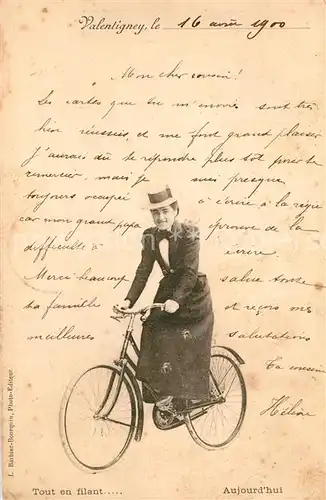 Valentigney, le 16 août 1900
Mon cher cousin!
Les cartes que tu m'envoies sont très
bien réussies, et me font grand plaisir
J'aurais dû te répondre plus tôt pour te
remercier, mais je suis presque
toujours occupée à écrire à la
car mon grand papa éprouve de la
difficulté à écrire.
Merci beaucoup salue toute
ta famille et reçois mes
meilleures salutations
Ta cousine
Hélène
L. Barbier-Bourquin, Photo-Editeur
Tout en filant..... Aujourd'hui